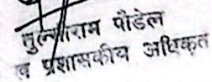 तुलसीराम पौडेल
व प्रशासकीय अधिकृत